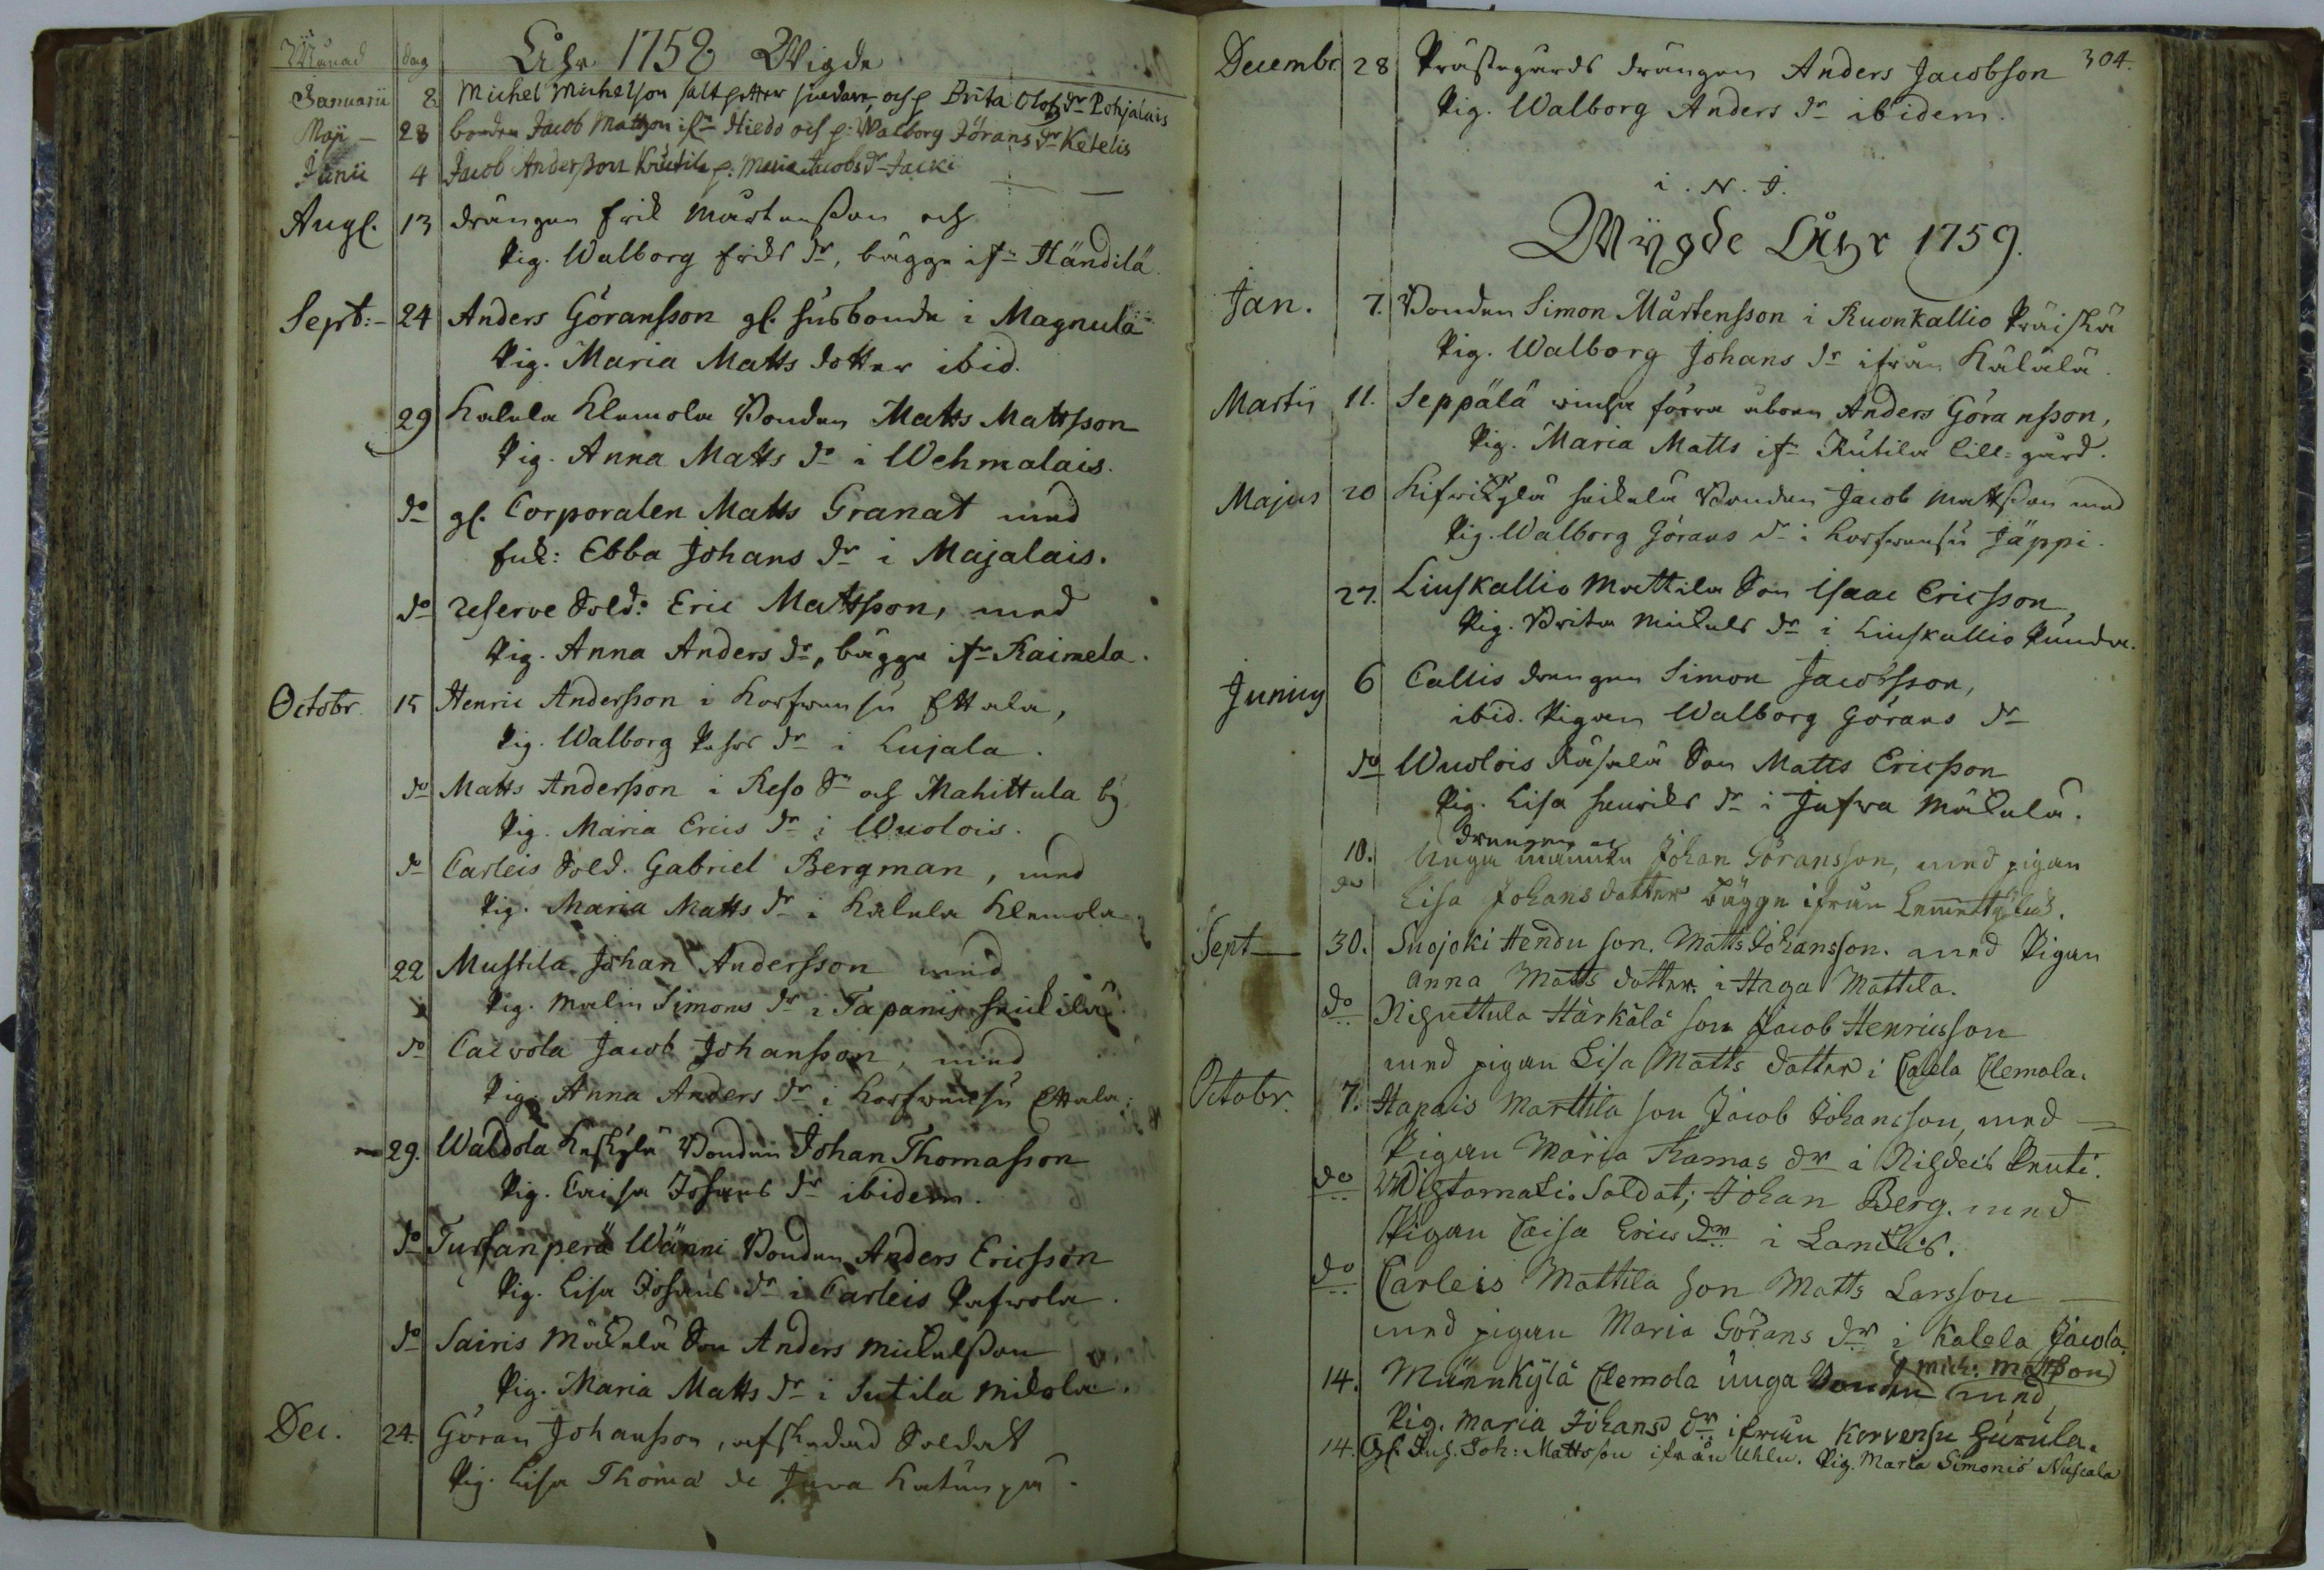 Månad dag Åhr 1758 Wigde
Januarii 8 Michel Michelson saltpetter siudare, och p Brita Olofs dr Pohjalais
Maji – 28 bonden Jacob Matzon ifr Hiedo och p: Walborg Jörans dr Ketelis
Junii 4 Jacob Andersson Krutila p. Maria Jacobs dr Jacki
Aug. 13 drängen Erik Mårtensson och
Pig. Walborg Eriks dr, bägge ifr Händilä.
Sept: – 24 Anders Göransson gl. husbonde i Magnula
Pig. Maria Matts dotter ibid.
29 Kalela Klemola Bonden Matts Mattsson
Pig. Anna Matts dr i Wehmalais.
do gl. Corporalen Matts Granat med
Enk: Ebba Johans dr i Majalais.
do reserve Sold: Eric Mattsson, med
Pig. Anna Anders dr, bägge ifr Raimela.
Octobr. 15 Henric Andersson i Korfwensu Ettala,
Pig. Walborg Pehrs dr i Lujala.
do Matts Andersson i Reso Sn och Mahittula by
Pig. Maria Erics dr i Wuolois.
do Carleis Sold. Gabriel Bergman, med
Pig. Maria Matts dr i Kalela Klemola
22 Mustila Johan Andersson med
Pig. Malin Simons dr i Tapanis Heickilä.
do Caivola Jacob Johansson, med
Pig. Anna Anders dr i Korfwensu Ettala.
29. Waldola Keskylä Bonden Johan Thomasson
Pig. Caisa Johans dr ibidem.
do Tursanperä Wänni Bonden Anders Ericsson
Pig. Lisa Johans dr i Carleis Pafwola.
do Sairis Mäkelä Son Anders Mickelsson
Pig. Maria Matts dr i Sutila Mikola.
Dec. 24. Göran Johansson, afskedad Soldat
Pig. Lisa Thomä dr Juva
304.
Decembr. 28 Prästegårds drängen Anders Jacobson
Pig. Walborg Anders dr ibidem.
i. N. J.
Wygde Åhr 1759.
Jan. 7. Bonden Simon Mårtensson i Ruonkallio Präiskä
Pig. Walborg Johans dr ifrån Kälälä.
Martis 11. Seppälä förra åboen Anders Göransson,
Pig. Maria Matts ifr Rutila lill-gård.
Majus 20 Heikelä Bonden Jacob Mattsson med
Pig. Walborg Görans dr i Korfwensu Jäppi.
27. Liuskallio Mattila Son Isaac Ericsson,
Pig. Brita Mickels dr i Liuskallio Punda.
Junius 6 Callis drengen Simon Jacobsson,
ibid. Pigan Walborg Görans dr
do Wuolois Käsälä Son Matts Ericsson
Pig. Lisa Henriks dr i Jufwa Mäkelä.
Drengen
10. Unga Johan Göransson, med pigan
Lisa Johansdotter bägge ifrån
Sept — 30. Suojoki Hendu son. Matts Johansson. med Pigan
Anna Matts dotter i Haga Mattila.
do Niguttula Härkälä son Jacob Henricsson
med pigan Lisa Matts dotter i Calela Clemola.
Octobr. 7. Hapais Marttila son Jacob Johansson, med –
Pigan Maria Thomas dr i Penti.
do Soldat; Johan Berg. med
Pigan Caisa Erics dr i
do Carleis Mattila son Matts Larsson —
med pigan Maria Görans dr i Kalela Jacola.
Mich: Mattsson
14. Männkylä Clemola unga Bonden med
Pig. Maria Johans dr ifrån Korvensu
14. Joh: Mattsson ifrån Uhlu. Pig. Maria Simonis